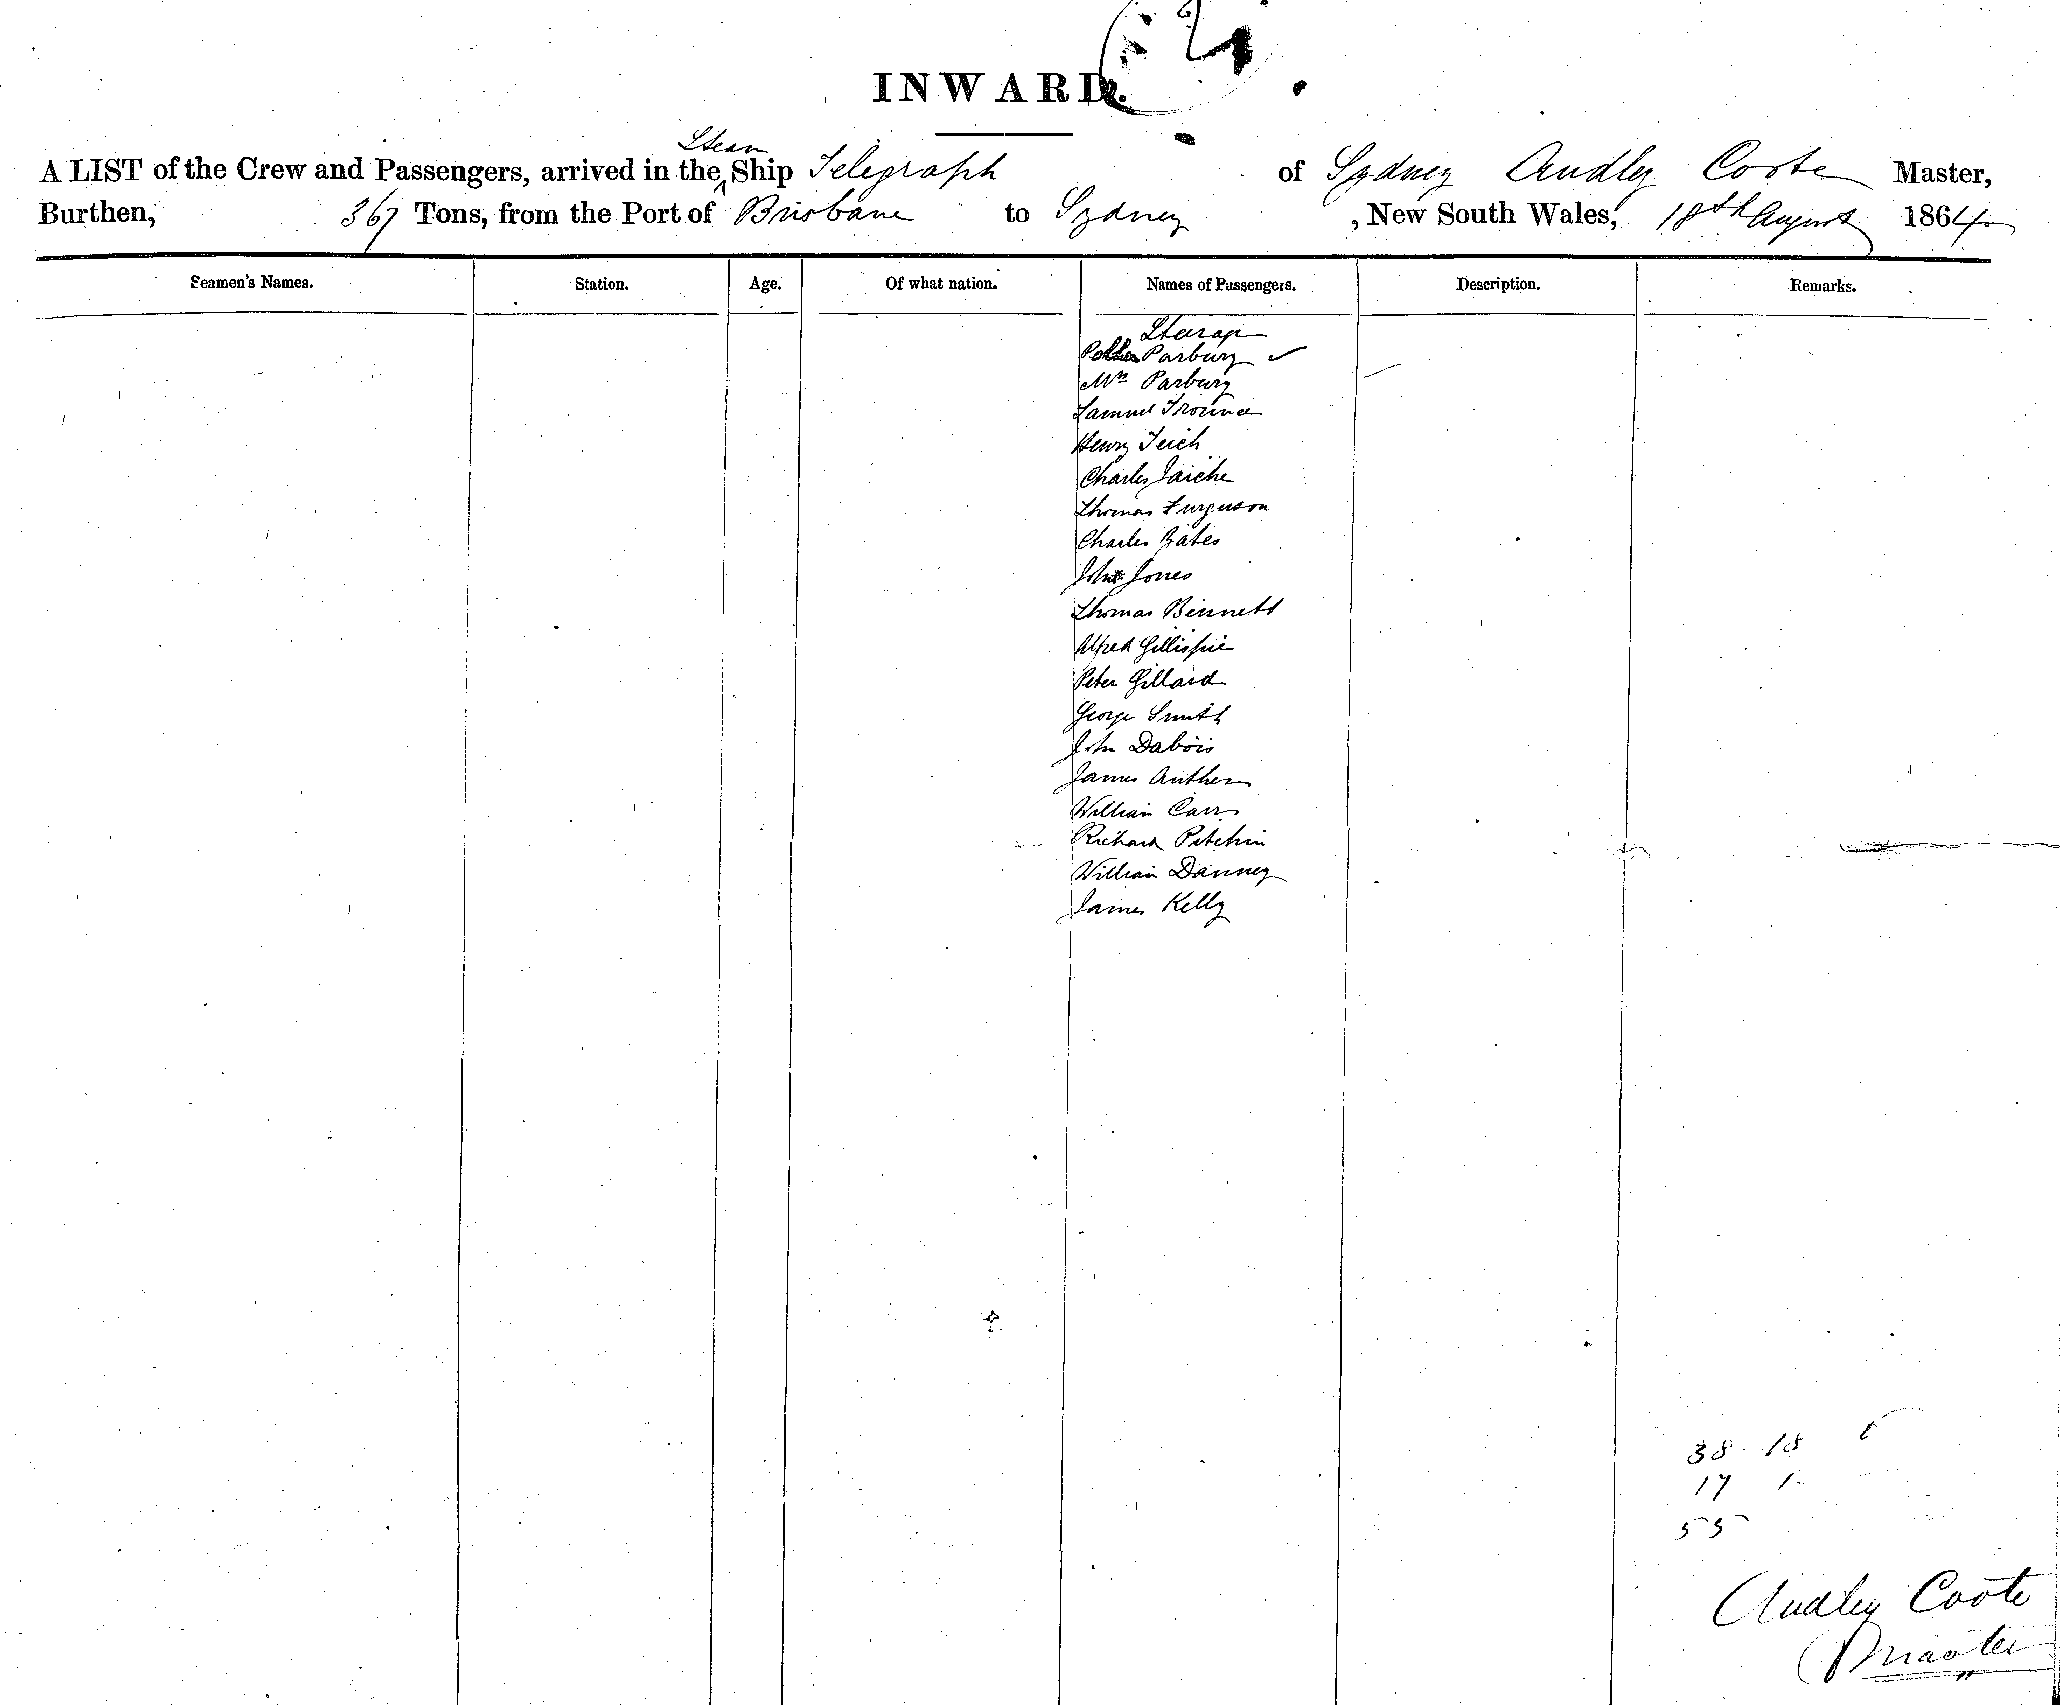 INWARD.
Steam
A LIST of the Crew and Passengers, arrived in the ^ Ship Telegraph of Sydney Audley Coote Master,
Burthen, 367 Tons, from the Port of Brisbane to Sydney , New South Wales, 18th August 1864
Seamen's Names. Station. Age. Of what nation. Names of Passengers. Description. Remarks.
Steerage
Parbury ✓
Mrs Parbury
Samuel
Henry Teich
Charles Jaiche
Thomas Furguson
Charles Bates
John Jones
Thomas Bennett
Alfred Gillispie
Peter Gillard
George Smith
John Dabois
James Anther
William Carr
Richard Pitchin
William Danney
James Kelly
38 18
17 1
55
Audley Coote
Master